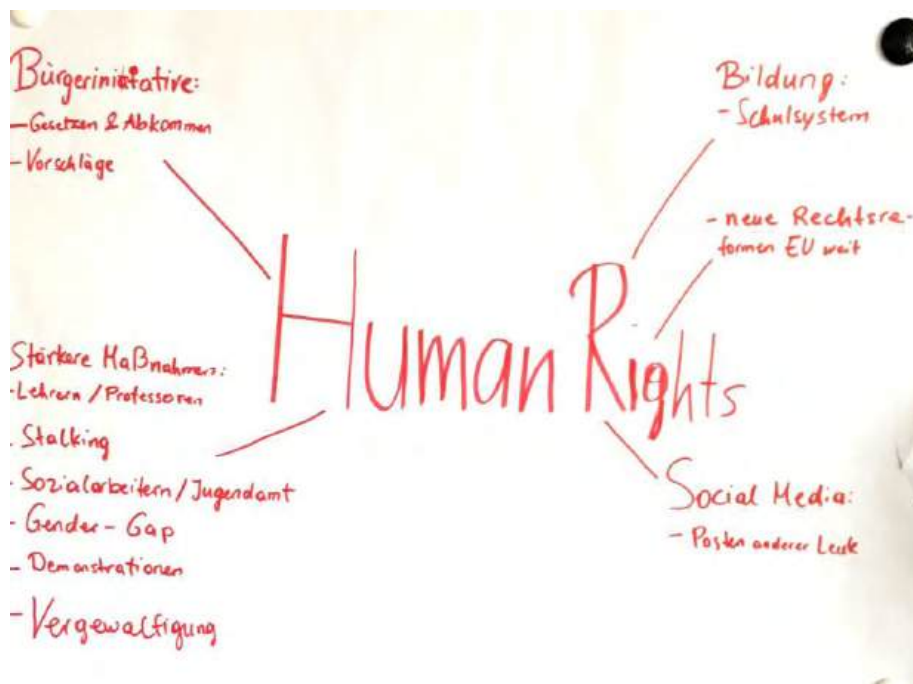 Bürgerinitiative:
- Gesetzen & Abkommen
- Vorschläge
Bildung:
- Schulsystem
- neue Rechtsre-
formen EU weit
Human Rights
Stärkere Maßnahmen:
- Lehrern / Professoren
- Stalking
- Sozialarbeitern / Jugendamt
- Gender-Gap
- Demonstrationen
- Vergewaltigung
Social Media:
- Posten anderer Leute